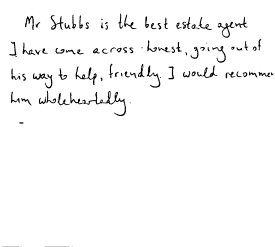 Mr Stubbs is the best estate agent
I have come across - honest, going out of
his way to help, friendly. I would recomme
him wholeheartedly.
-